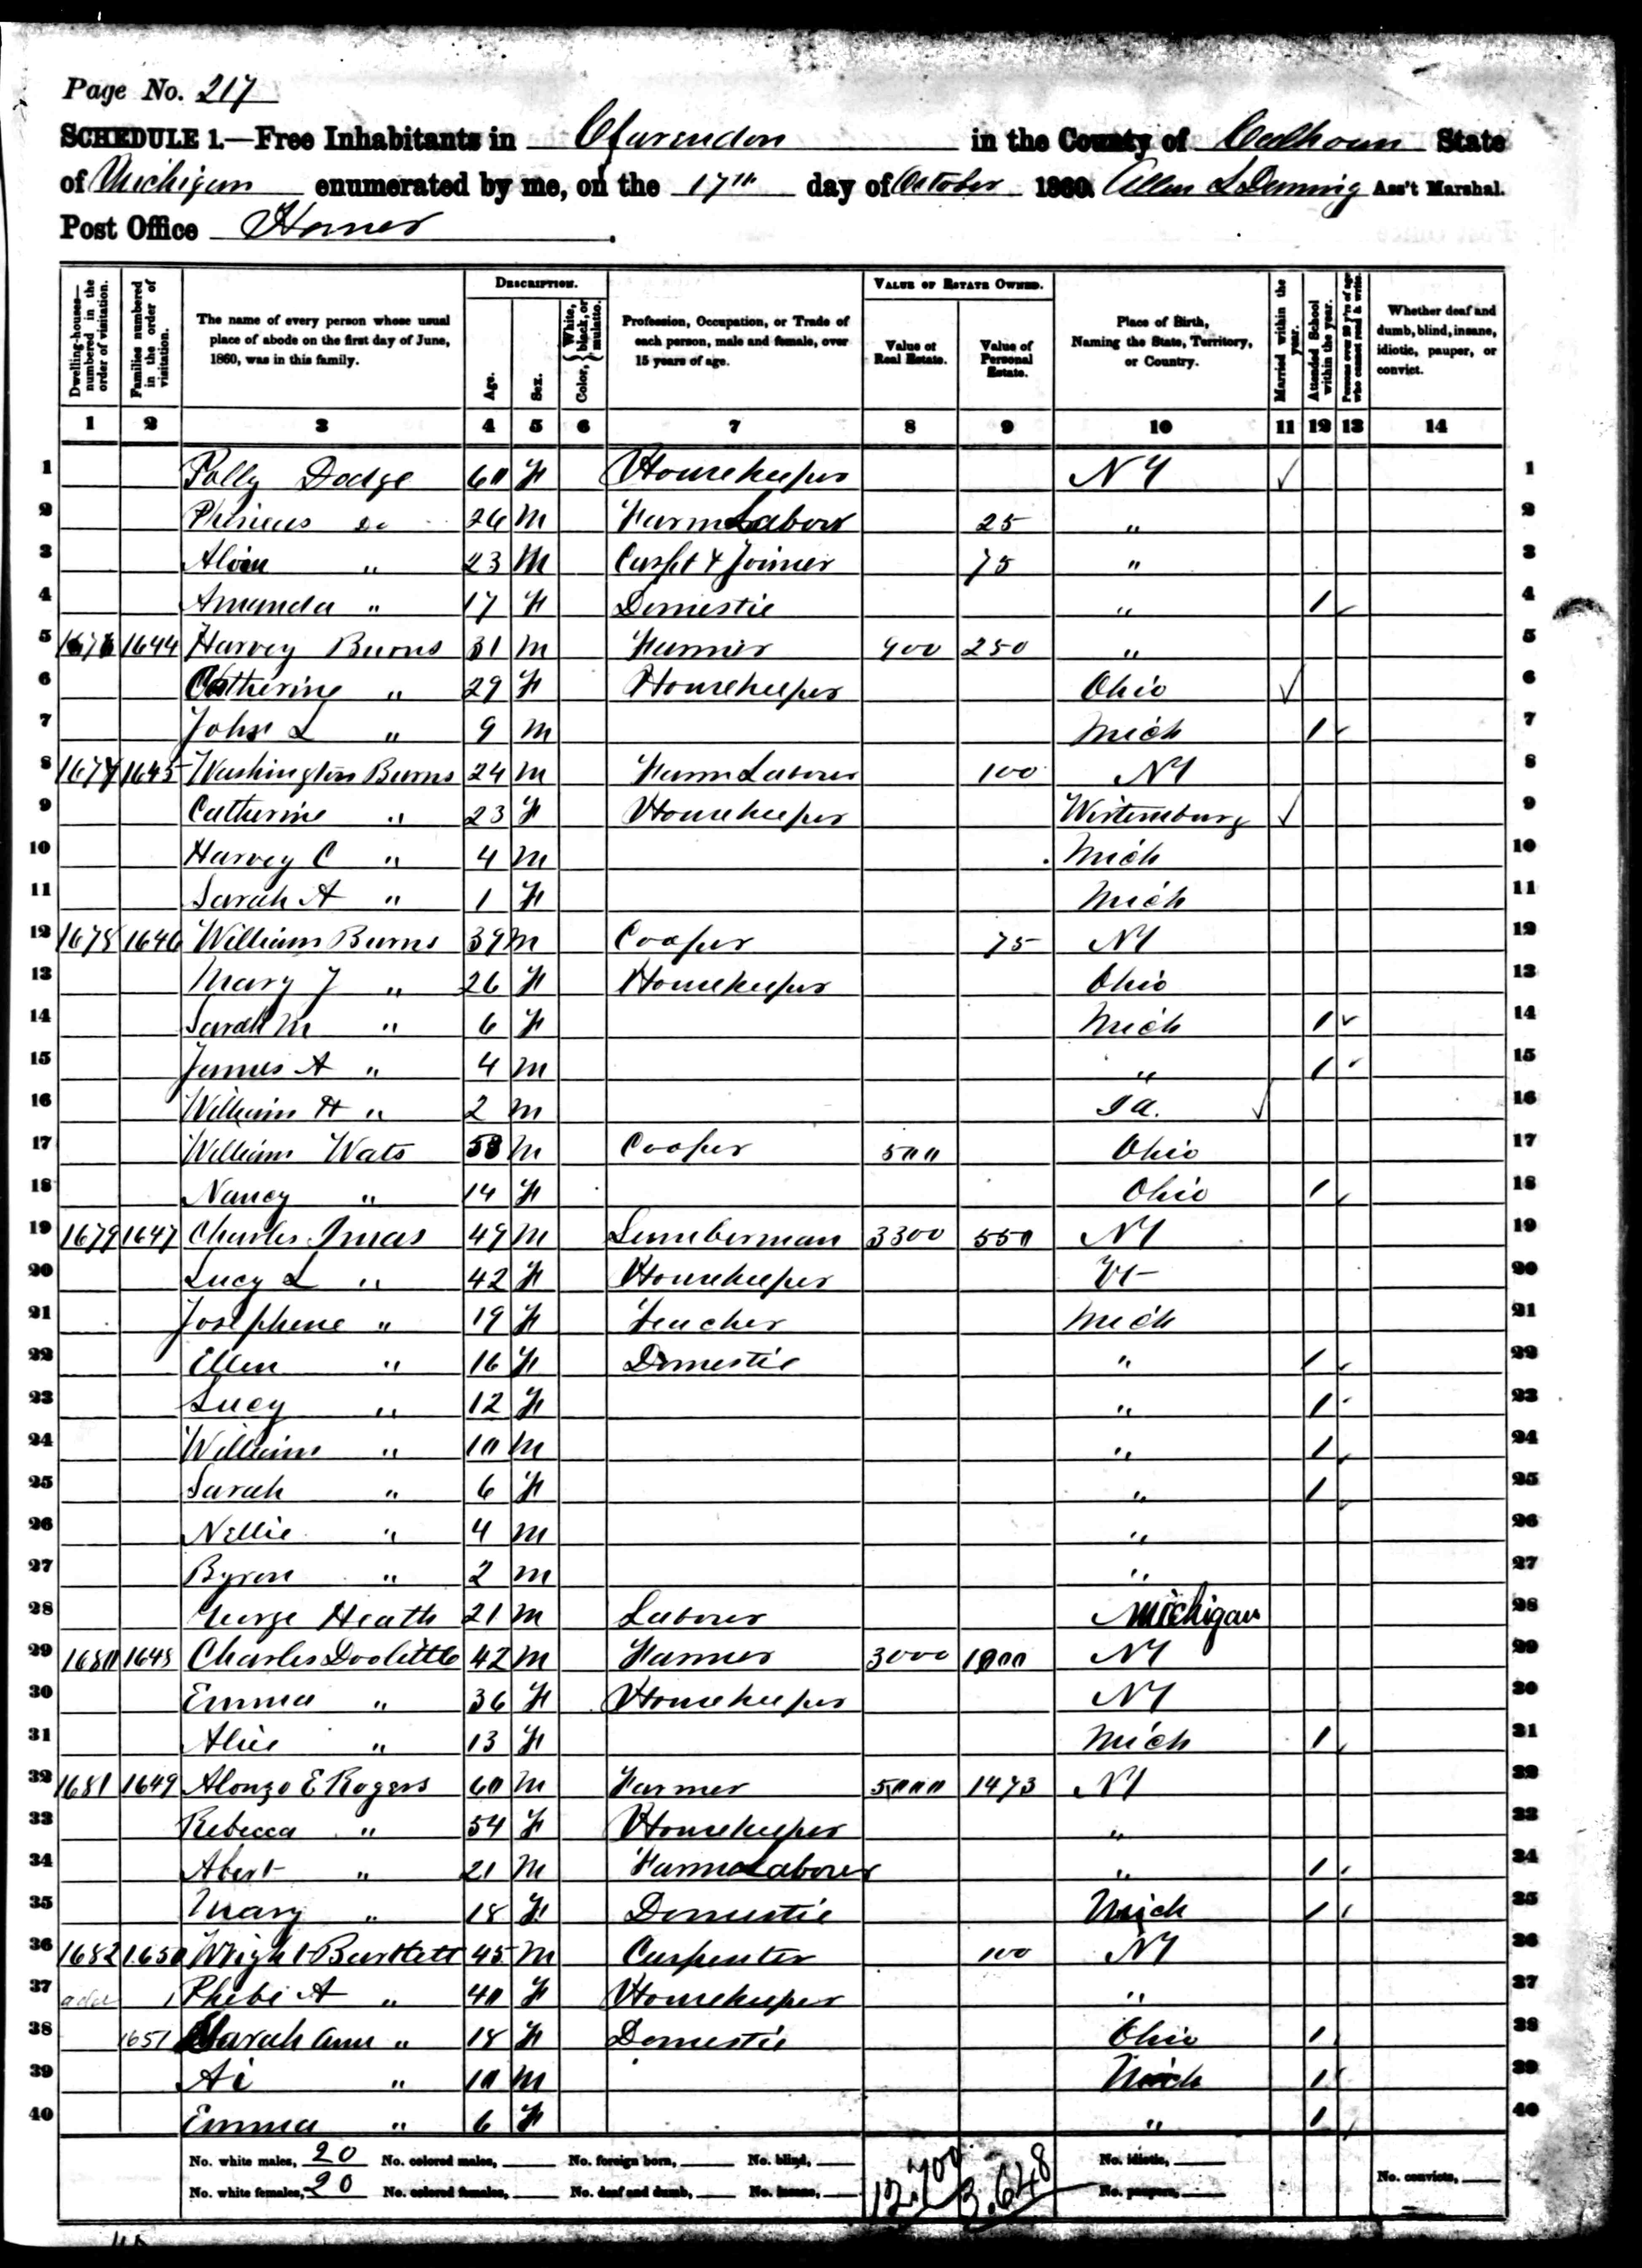 Page No. 217
SCHEDULE 1.—Free Inhabitants in Clarendon in the County of Calhoun State
of Michigan enumerated by me, on the 17th day of October 1860. Allen S Deming Ass't Marshal.
Post Office Homer
Dwelling-houses—numbered in the order of visitation. Families numbered in the order of visitation. The name of every person whose usual place of abode on the first day of June, 1860, was in this family. DESCRIPTION. Age. Sex. Color, White, black, or mulatto. Profession, Occupation, or Trade of each person, male and female, over 15 years of age. VALUE OF ESTATE OWNED. Value of Real Estate. Value of Personal Estate. Place of Birth, Naming the State, Territory, or Country. Married within the year. Attended School within the year. Persons over 20 y'rs of age who cannot read & write. Whether deaf and dumb, blind, insane, idiotic, pauper, or convict.
1 2 3 4 5 6 7 8 9 10 11 12 13 14
1 Polly Dodge 60 F Housekeeper NY ✓ 1
2 Phineus Do 26 M Farm Labour 25 " 2
3 Alvin " 23 M Carpt & Joiner 75 " 3
4 Amanda " 17 F Domestic " 1 4
5 1676 1644 Harvey Burns 31 M Farmer 900 250 " 5
6 Catherine " 29 F Housekeeper Ohio ✓ 6
7 John L " 9 M Mich 1 7
8 1677 1645 Washington Burns 24 M Farm Laborer 100 NY 8
9 Catherine " 23 F Housekeeper Wirtemburg ✓ 9
10 Harvey C " 4 M Mich 10
11 Sarah A " 1 F Mich 11
12 1678 1646 William Burns 39 M Cooper 75 NY 12
13 Mary J " 26 F Housekeeper Ohio 13
14 Sarah M " 6 F Mich 1 14
15 James A " 4 M " 1 15
16 William H " 2 M Ia. ✓ 16
17 William Wats 53 M Cooper 500 Ohio 17
18 Nancy " 14 F Ohio 1 18
19 1679 1647 Charles 49 M Lumberman 3300 550 NY 19
20 Lucy L " 42 F Housekeeper Vt 20
21 Josephene " 19 F Teacher Mich 21
22 Ellen " 16 F Domestic " 1 22
23 Lucy " 12 F " 1 23
24 William " 10 M " 1 24
25 Sarah " 6 F " 1 25
26 Nellie " 4 M " 26
27 Byron " 2 M " 27
28 George Heath 21 M Laborer Michigan 28
29 1680 1648 Charles Doolittle 42 M Farmer 3000 1000 NY 29
30 Emma " 36 F Housekeeper NY 30
31 Alice " 13 F Mich 1 31
32 1681 1649 Alonzo E Rogers 60 M Farmer 5000 1473 NY 32
33 Rebecca " 54 F Housekeeper " 33
34 Abert " 21 M Farm Laborer " 1 34
35 Mary " 18 F Domestic Mich 1 35
36 1682 1650 Wright Bartlett 45 M Carpenter 100 NY 36
37 add 1 Phebe A " 40 F Housekeeper " 37
38 1651 Sarah Ann " 18 F Domestic Ohio 1 38
39 Ai " 10 M Mich 1 39
40 Emma " 6 F " 1 40
No. white males, 20 No. colored males, No. foreign born, No. blind, 12,700 3,648 No. idiotic,
No. white females, 20 No. colored females, No. deaf and dumb, No. insane, No. paupers, No. convicts,